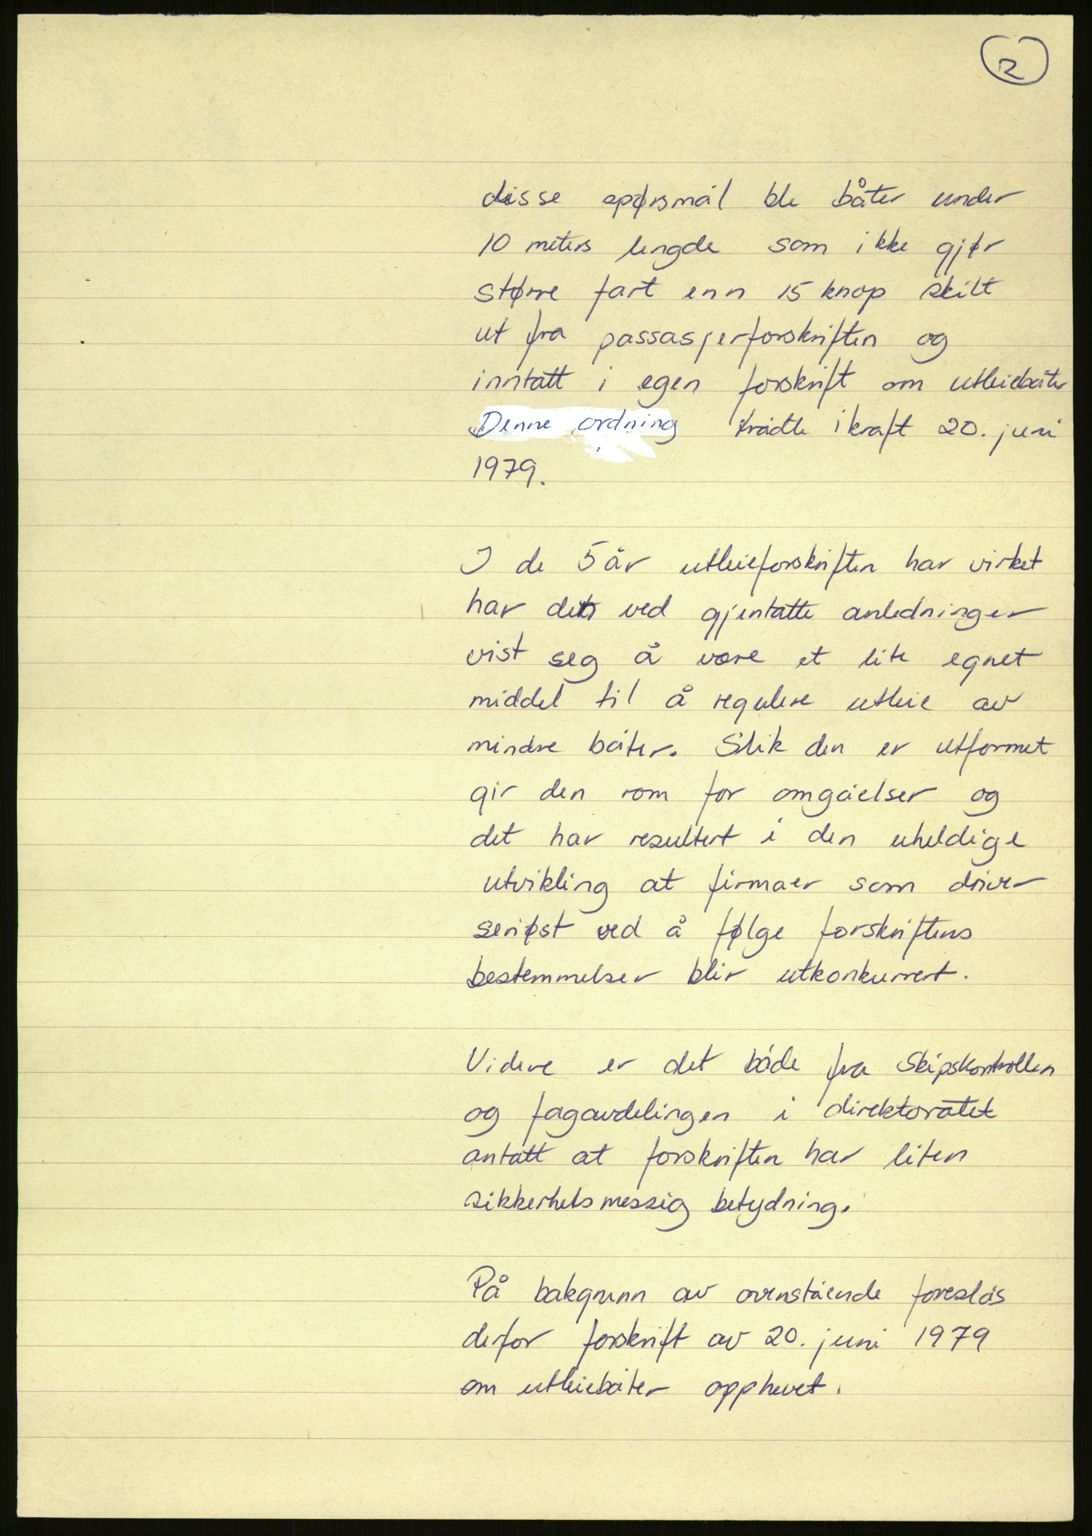 2
disse spørsmål ble båter under
10 meters lengde som ikke gjør
større fart enn 15 knop skilt
ut fra passasjerforskriften og
inntatt i egen forskrift om utleiebåter
Denne ordning trådte i kraft 20. juni
1979.
I de 5 år utleieforskriften har virket
har det ved gjentatte anledninger
vist seg å være et lite egnet
middel til å regulere utleie av
mindre båter. Slik den er utformet
gir den rom for omgåelser og
det har resultert i den uheldige
utvikling at firmaer som driver
seriøst ved å følge forskriftens
bestemmelser blir utkonkurrert.
Videre er det både fra Skipskontrollen
og fagavdelingen i direktoratet
antatt at forskriften har liten
sikkerhetsmessig betydning.
På bakgrunn av ovenstående foreslås
derfor forskrift av 20. juni 1979
om utleiebåter opphevet.